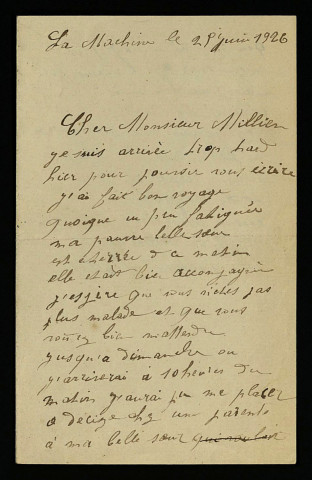 La Machine le 25 juin 1926
Cher Monsieur Millien
je suis arrivée trop tard
hier pour pouvoir vous écrire
j'ai fait bon voyage
quoique un peu fatiguée
ma pauvre belle sœur
est enterrée de ce matin
elle etait bien accompagnée
j'espère que vous n'êtes pas
plus malade et que vous
voirez bien m'attendre
jusqu'a dimanche ou
j'arriverai à 10 heures du
matin j'aurai pu me placer
a Decize chez une parente
à ma belle sœur